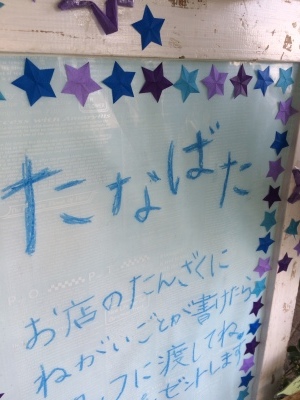 たなばた
お店のたんざくに
ねがいごとが書けたら
タッフに渡してね
ゼントします